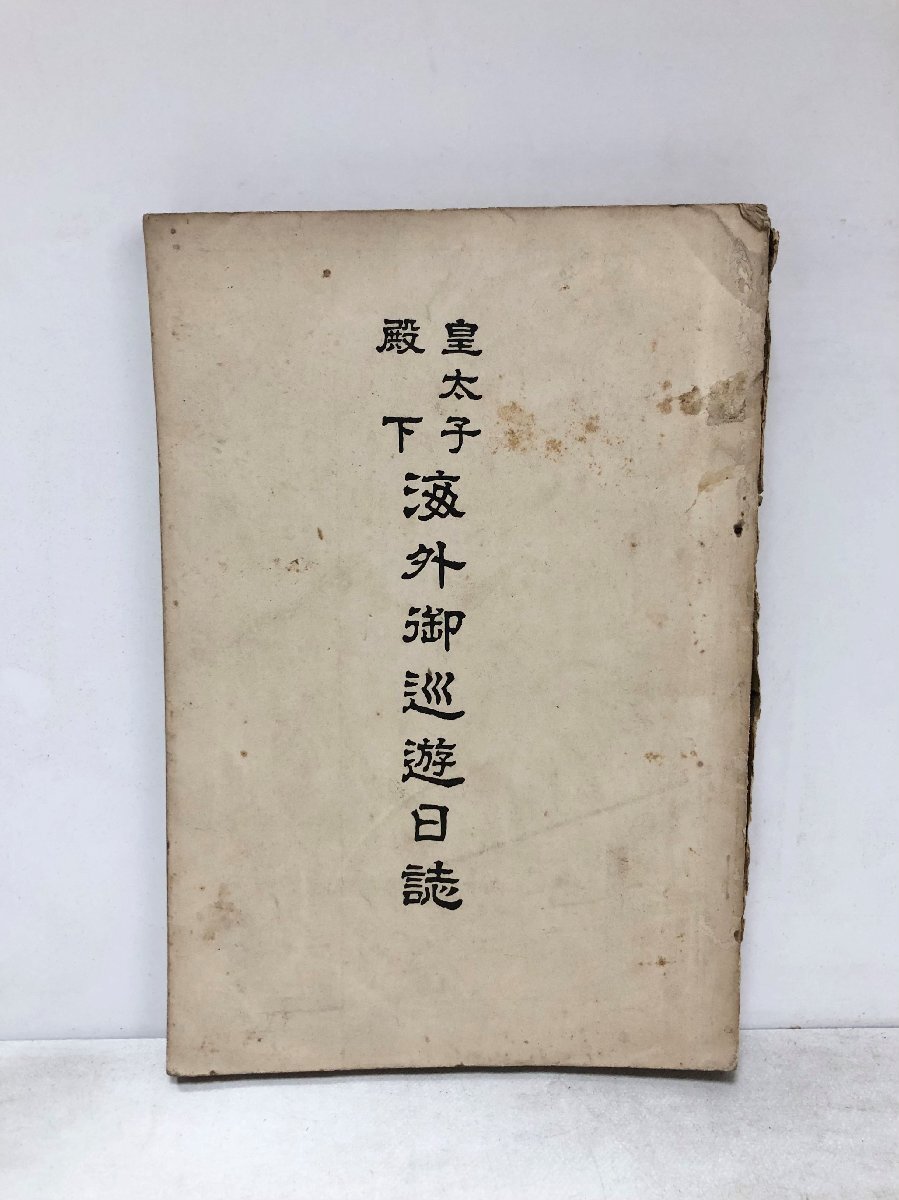 皇太子
殿下
海外御巡遊日誌